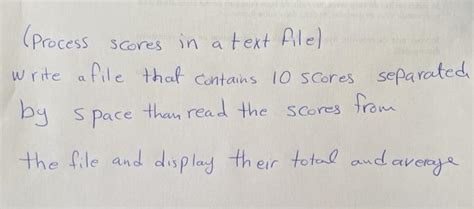 (Process scores in a text file)
write a file that contains 10 scores separated
by space than read the scores from
the file and display their total and average